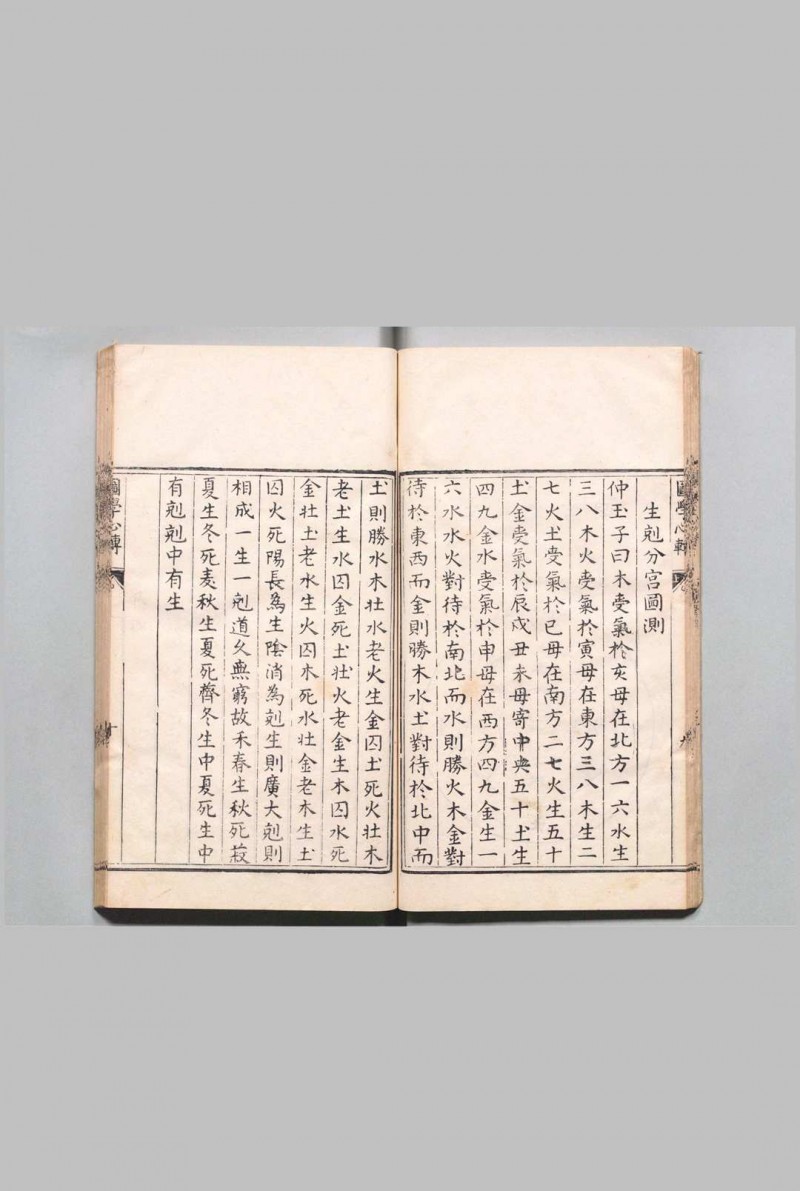 圖學心轉
生剋分宮圖測
仲玉子曰木受氣於亥母在北方一六水生
三八木火受氣於寅母在東方三八木生二
七火土受氣於巳母在南方二七火生五十
土金受氣於辰戍丑未母寄中央五十土生
四九金水受氣於申母在西方四九金生一
六水水火對待於南北而水則勝火木金對
待於東西而金則勝木水土對待於北中而
土則勝水木壯水老火生金囚土死火壯木
老土生水囚金死土壯火老金生木囚水死
金壯土老水生火囚木死水壯金老木生土
囚火死陽長為生陰消為剋生則廣大剋則
相成一生一剋道久無窮故禾春生秋死菽
夏生冬死麦秋生夏死薺冬生中夏死生中
有剋剋中有生
圖學心轉